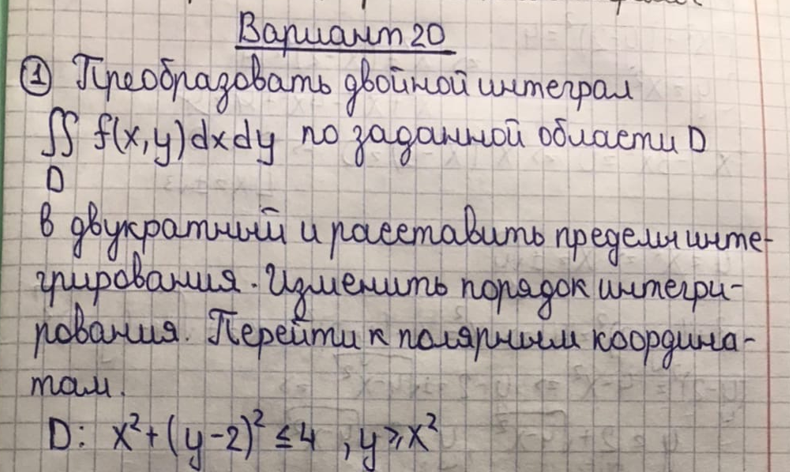 Вариант 20
① Преобразовать двойной интеграл
∬ f(x,y)dxdy по заданной области D
D
в двукратный и расставить пределы инте-
грирования. Изменить порядок интегри-
рования. Перейти к полярным координа-
там.
D: x²+(y-2)²≤4, y⩾x²